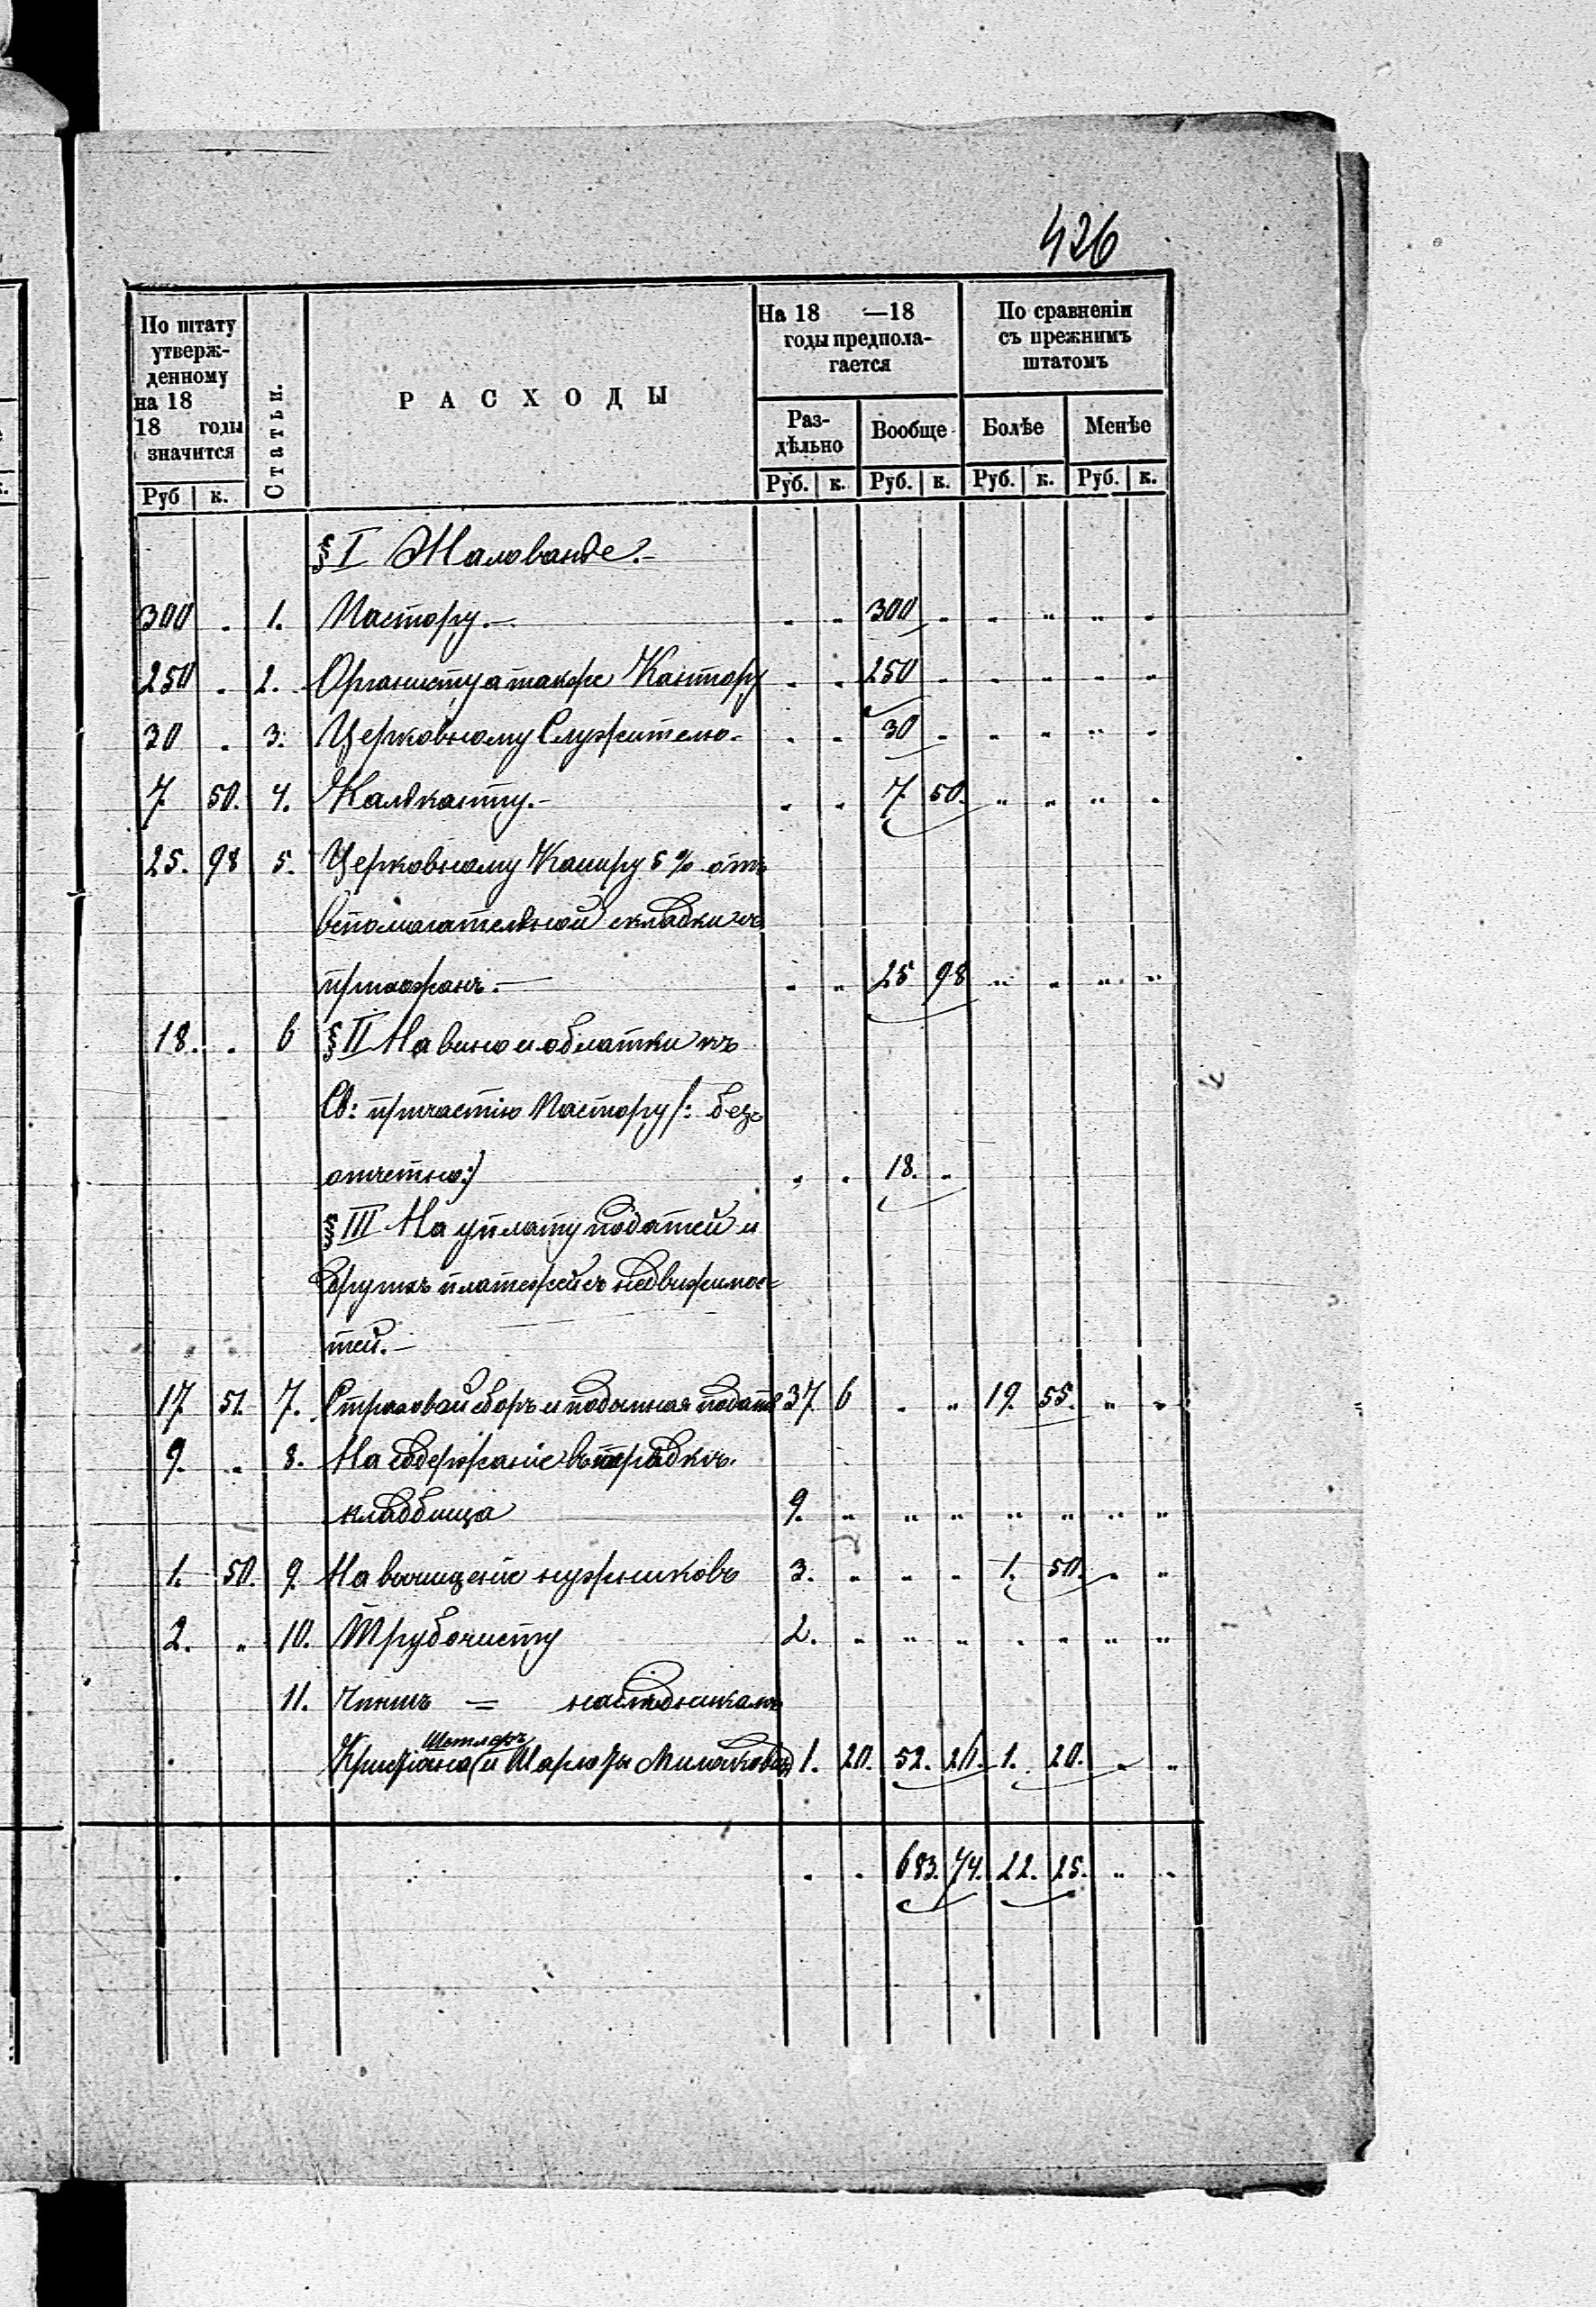 426
По штату утверж-денному на 18 18 годы значится
Статьи.
РАСХОДЫ
На 18 —18 годы предпола-гается
По сравненіи съ прежнимъ штатомъ
Раз-дѣльно
Вообще
Болѣе
Менѣе
Руб к. Руб. к. Руб. к. Руб. к. Руб. к.
§ I Жалованье.-
300 . 1. Пастору.- . . 300 . . " " .
250 . 2. Органисту а также Кантору . . 250 . . " " .
30 . 3. Церковному Служителю. . . 30 . " " " "
7. 50. 4. Калканту.- . . 7. 50. " " " .
25. 98 5. Церковному Кассиру 5% отъ
вспомогательной складки съ
прихожанъ.- . . 25. 98 " " " "
18. . 6 § II На вино и облатки къ
Св: причастію Пастору /: без-
отчетно:) . . 18. .
§ III На уплату податей и
другихъ платежей съ недвижимос-
тей.-
17 51. 7. Страховой сборъ и подымная подать 37. 6 . " 19. 55. " "
9. " 8. На содержаніе въ порядкѣ
кладбища 9. " " " " " " "
1. 50. 9. На вычищеніе нужниковъ 3. " " " 1. 50. " "
2. " 10. Трубочисту 2. " " " . " " "
11. Чиншъ = наслѣдникамъ
Христіана (и Шарлоты 1. 20. 52. 26. 1. 20. " "
. . . 683. 74. 22. 25. " "